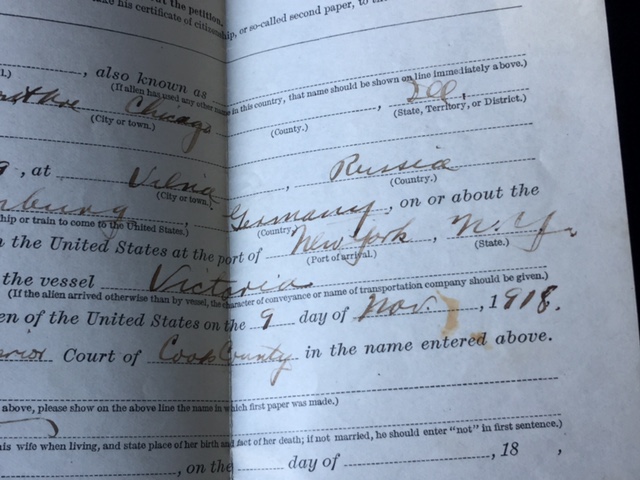 out the petition.
ke his certificate of citizenship, or so-called second paper, to the
, also known as
(If alien has used any other name in this country, that name should be shown on line immediately above.)
Chicago , Ill,
(City or town.) (County.) (State, Territory, or District.)
, at Vilna , Russia
(City or town.) (Country.)
nburg , Germany , on or about the
ship or train to come to the United States.) (Country
n the United States at the port of New York , N. Y.
(Port of arrival.) (State.)
the vessel Victoria
(If the alien arrived otherwise than by vessel, the character of conveyance or name of transportation company should be given.)
en of the United States on the 9 day of Nov. , 1918.
Court of Cook County in the name entered above.
above, please show on the above line the name in which first paper was made.)
his wife when living, and state place of her birth and fact of her death; if not married, he should enter "not" in first sentence.)
, on the day of , 18 ,